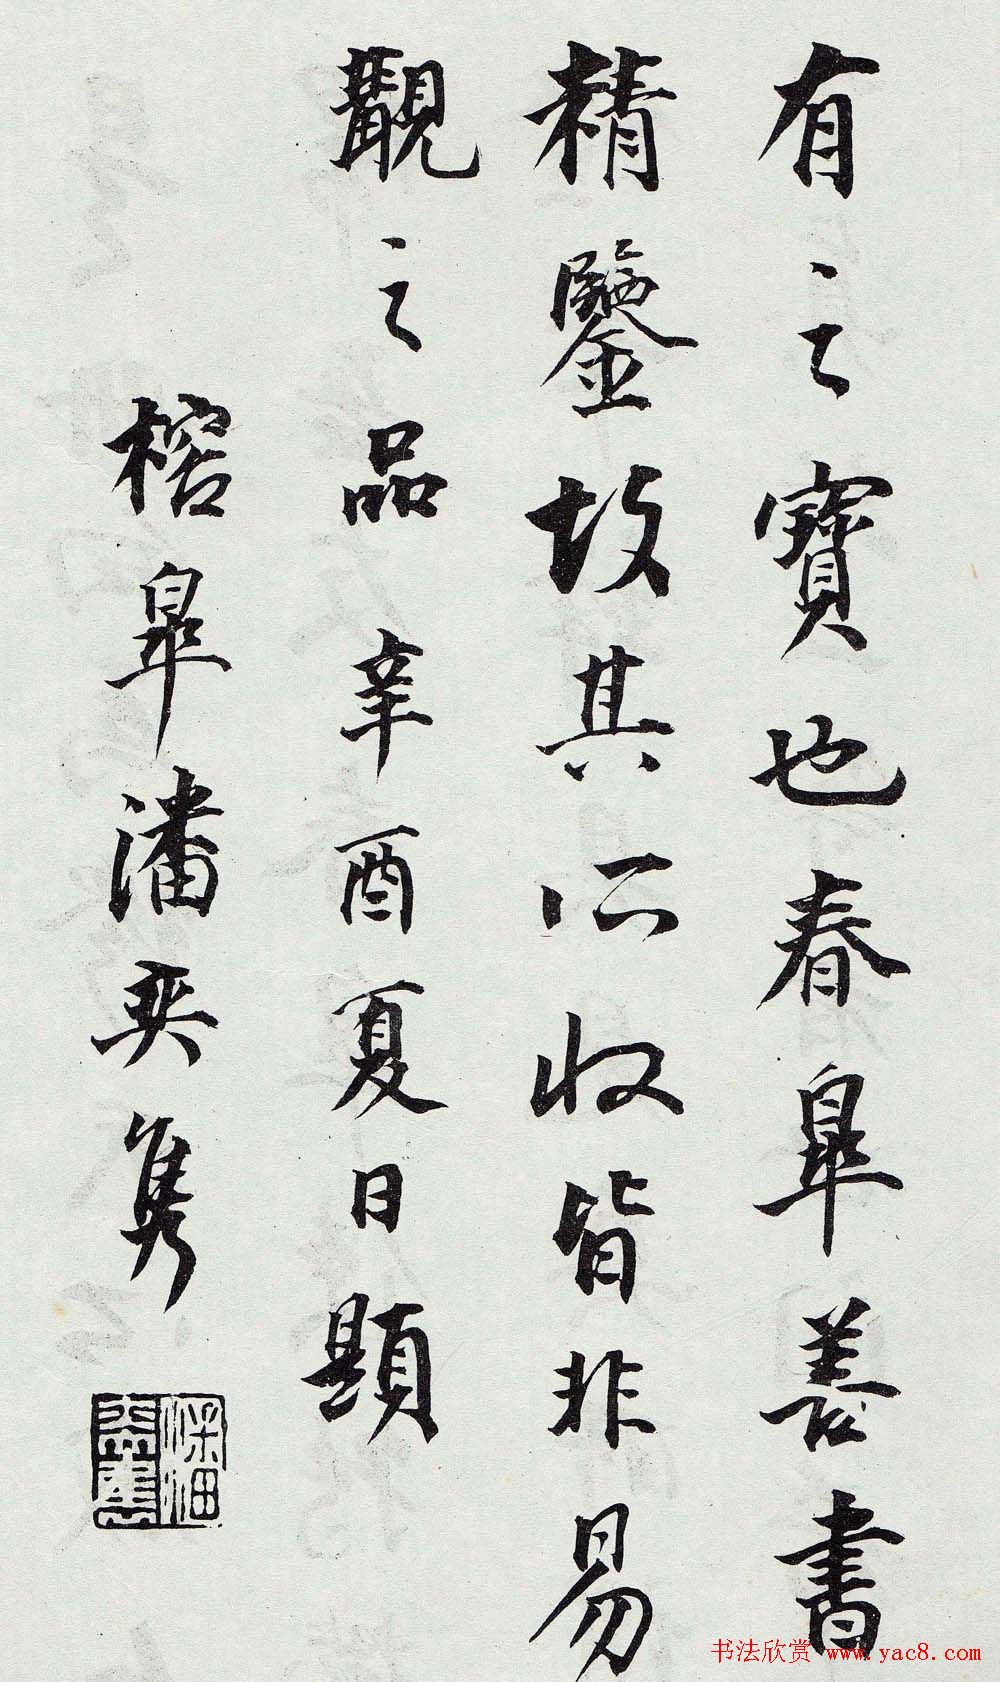 有之寶也春臯善書
精鑒故其所收皆非易
觀之品辛酉夏日題
榕臯潘奕雋
潘奕雋
书法欣赏 www.yac8.com